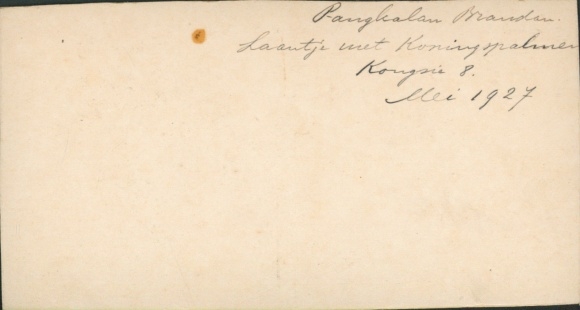 Pangkalan Brandan.
Laantje met Koningspalmen
Kongsie 8.
Mei 1927